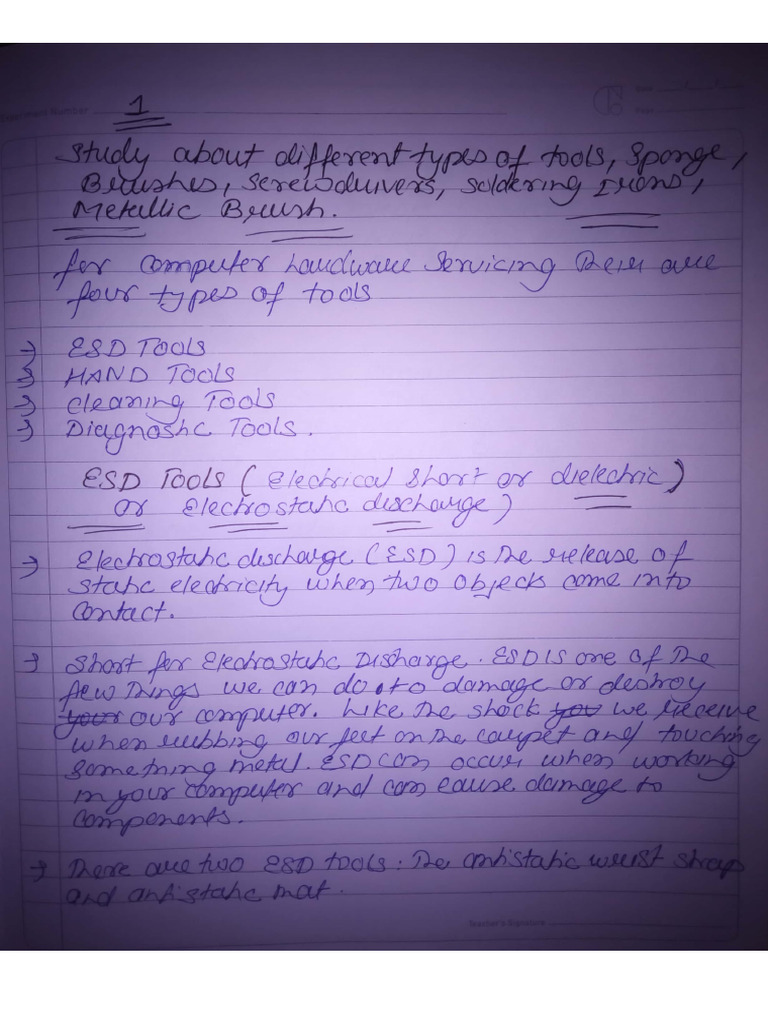 1
Study about different types of tools, Sponge,
Brushes, screwdrivers, soldering Irons,
Metallic Brush.
for computer hardware servicing there are
four types of tools
→ ESD TOOLS
→ HAND TOOLS
→ cleaning TOOLS
→ Diagnostic TOOLS.
ESD TOOLS ( Electrical short or dielectric)
or Electrostatic discharge)
→ Electrostatic discharge (ESD) is the release of
static electricity when two objects come into
contact.
→ Short for Electrostatic Discharge. ESD is one of the
few things we can do to damage or destroy
your our computer. Like the shock you we receive
when rubbing our feet on the carpet and touching
something metal. ESD can occur when working
in your computer and can cause damage to
components.
→ There are two ESD tools: The antistatic wrist strap
and antistatic mat.
Teacher's Signature